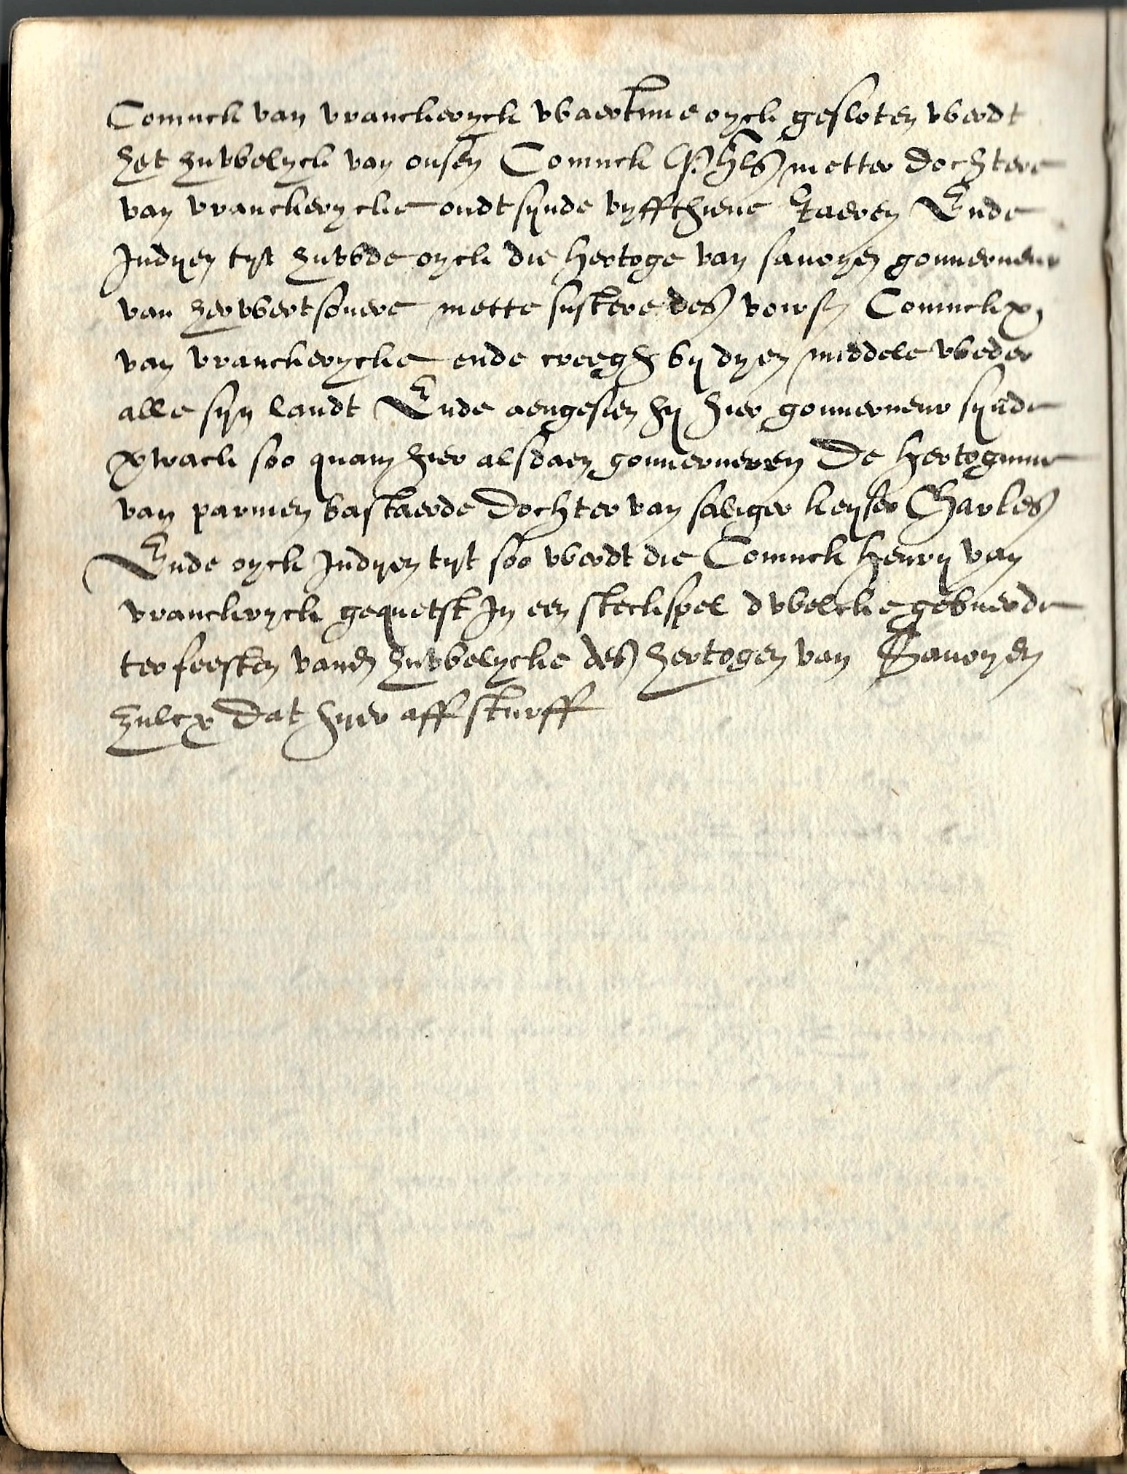 Coninck van vranckeryck waertinne oyck gesloten werdt
het huwelyck van onsen Coninck Phls metter dochtere
van vranckerycke oudt synde vyffthiene Jaeren Ende
Indyen tyt huwde oyck die hertoge van savoyen gouverneur
van herwertsovere mette sustere des voirs Conincx
van vranckerycke ende creegh by dyen middele weder
alle syn landt Ende aengesien hy hier gouverneur synde
vertrack soo quam hier alsdaen gouverneren De hertoginne
van parmen bastaerde dochter van saliger keyser Charles
Ende oyck Indyen tyt soo werdt die Coninck henry van
vranckryck gequetst In een steckspel dwelcke gebuerde
ter feesten vanden huwelycke des hertogen van Savoyen
zulcx dat hyer aff sturff